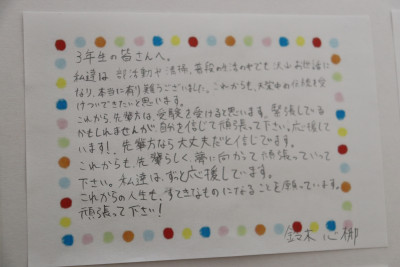 3年生の皆さんへ。
私達は、部活動や清掃、普段の生活の中でも沢山お世話に
なり、本当に有り難うございました。これからも、大宮中の伝統を受
けついできたいと思います。
これから、先輩方は、受験を受けると思います。緊張している
かもしれませんが自分を信じて頑張って下さい。応援して
います！先輩方なら大丈夫だと信じています。
これからも、先輩らしく、夢に向かって頑張っていって
下さい。私達は、ずっと応援しています。
これからの人生も、すてきなものになることを願っています。
頑張って下さい！
鈴木 心